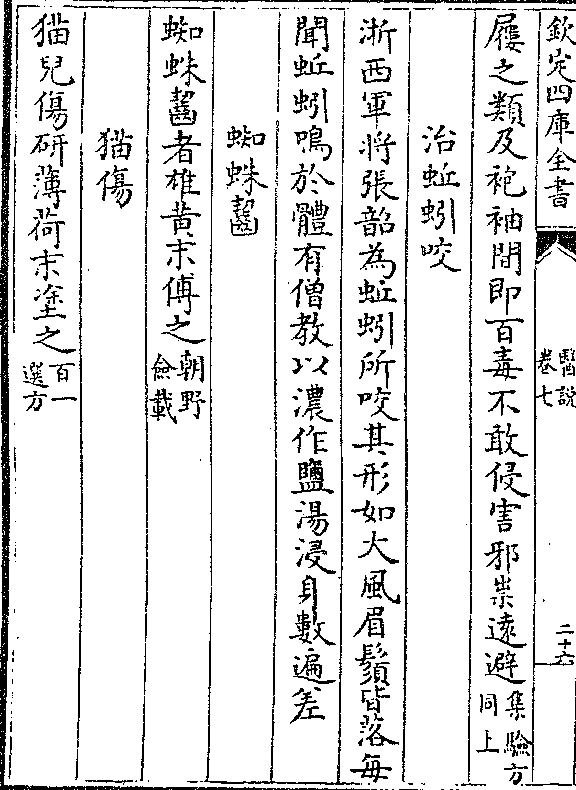 欽定四庫全書
醫說
卷七
二十六
屨之類及袍袖間即百毒不敢侵害邪祟遠避集驗方同上
治蚯蚓咬
浙西軍將張韶為蚯蚓所咬其形如大風眉鬚皆落每
聞蚯蚓鳴於體有僧教以濃作鹽湯浸身數遍差
蜘蛛齧
蜘蛛齧者雄黃末傅之朝野僉載
猫傷
猫兒傷研薄荷末塗之百一選方